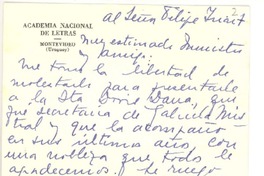 ACADEMIA NACIONAL
DE LETRAS
MONTEVIDEO
(Uruguay)
2
Al Señor Felipe
Muy estimado Ministro
y amigo:
Me tomo la libertad de
molestarlo para presentarle
a la Sta Doris Dana, que
fue secretaria de Gabriela Mis
tral y que la acompañó
en sus últimos años, con
una nobleza que todos le
agradecemos. Le ruego